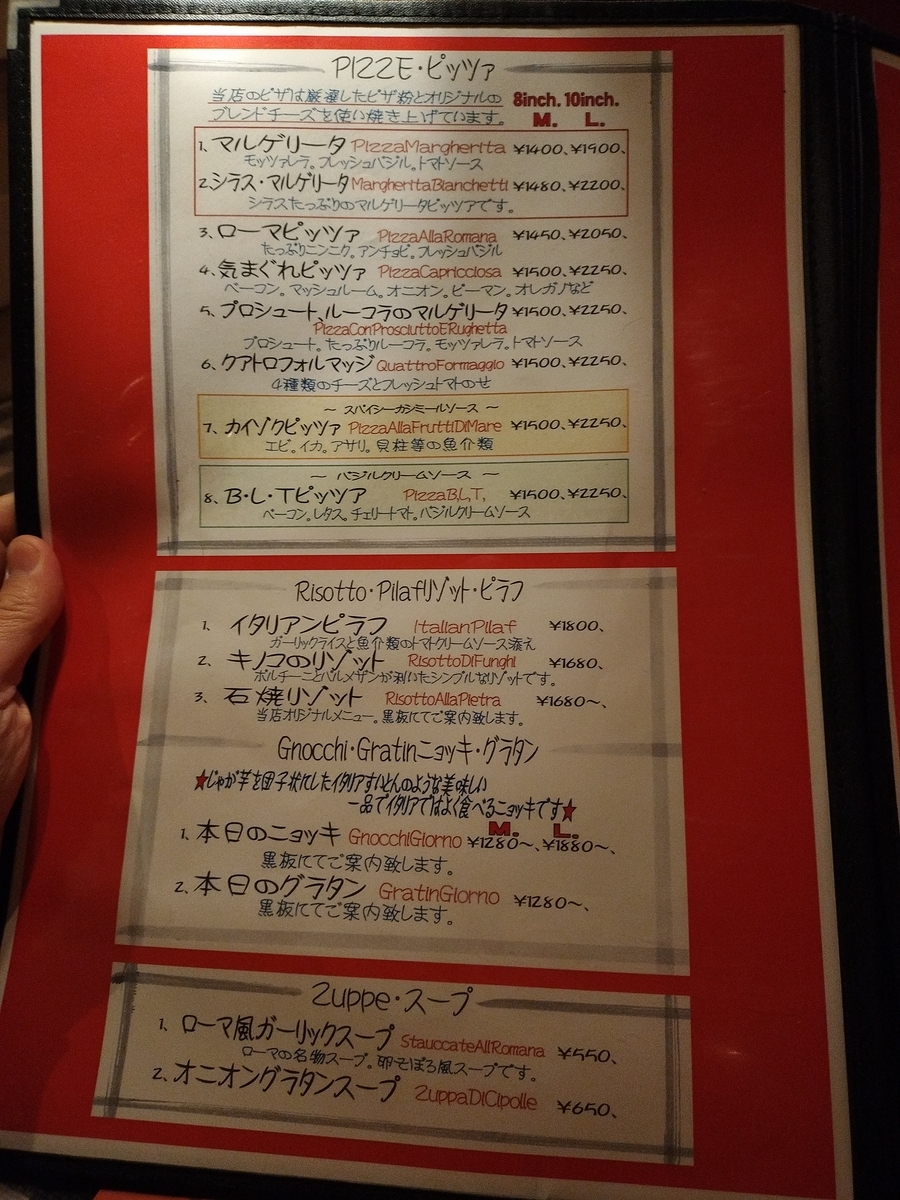 PIZZE・ピッツァ
当店のピザは厳選したピザ粉とオリジナルの
ブレンドチーズを使い焼き上げています。
8inch. 10inch.
M. L.
1. マルゲリータ PizzaMargherita ¥1400、¥1900、
モッツァレラ。フレッシュバジル。トマトソース
2. シラス・マルゲリータ MargheritaBianchetti ¥1480、¥2200、
シラスたっぷりのマルゲリータピッツアです。
3. ローマピッツァ PizzaAllaRomana ¥1450、¥2050、
たっぷりニンニク。アンチョビ。フレッシュバジル
4. 気まぐれピッツァ PizzaCapricciosa ¥1500、¥2250、
ベーコン。マッシュルーム。オニオン。ピーマン。オレガノなど
5. プロシュート、ルーコラのマルゲリータ ¥1500、¥2250、
PizzaConProsciuttoERughetta
プロシュート。たっぷりルーコラ。モッツァレラ。トマトソース
6. クアトロフォルマッジ QuattroFormaggio ¥1500、¥2250、
4種類のチーズとフレッシュトマトのせ
～ スパイシーカシミールソース ～
7. カイゾクピッツァ PizzaAllaFruttiDiMare ¥1500、¥2250、
エビ。イカ。アサリ。貝柱等の魚介類
～ バジルクリームソース ～
8. B・L・Tピッツア PizzaB,L,T, ¥1500、¥2250、
ベーコン。レタス。チェリートマト。バジルクリームソース
Risotto・Pilafリゾット・ピラフ
1. イタリアンピラフ ItalianPilaf ¥1800、
ガーリックライスと魚介類のトマトクリームソース添え
2. キノコのリゾット RisottoDiFunghi ¥1680、
ポルチーニとパルメザンが利いたシンプルなリゾットです。
3. 石焼リゾット RisottoAllaPietra ¥1680～、
当店オリジナルメニュー。黒板にてご案内致します。
Gnocchi・Gratinニョッキ・グラタン
★じゃが芋を団子状にしたイタリアすいとんのような美味しい
一品でイタリアではよく食べるニョッキです★
M. L.
1. 本日のニョッキ GnocchiGiorno ¥1280～、¥1880～、
黒板にてご案内致します。
2. 本日のグラタン GratinGiorno ¥1280～、
黒板にてご案内致します。
Zuppe・スープ
1. ローマ風ガーリックスープ StauccateAllRomana ¥550、
ローマの名物スープ。卵そぼろ風スープです。
2. オニオングラタンスープ ZuppaDiCipolle ¥650、